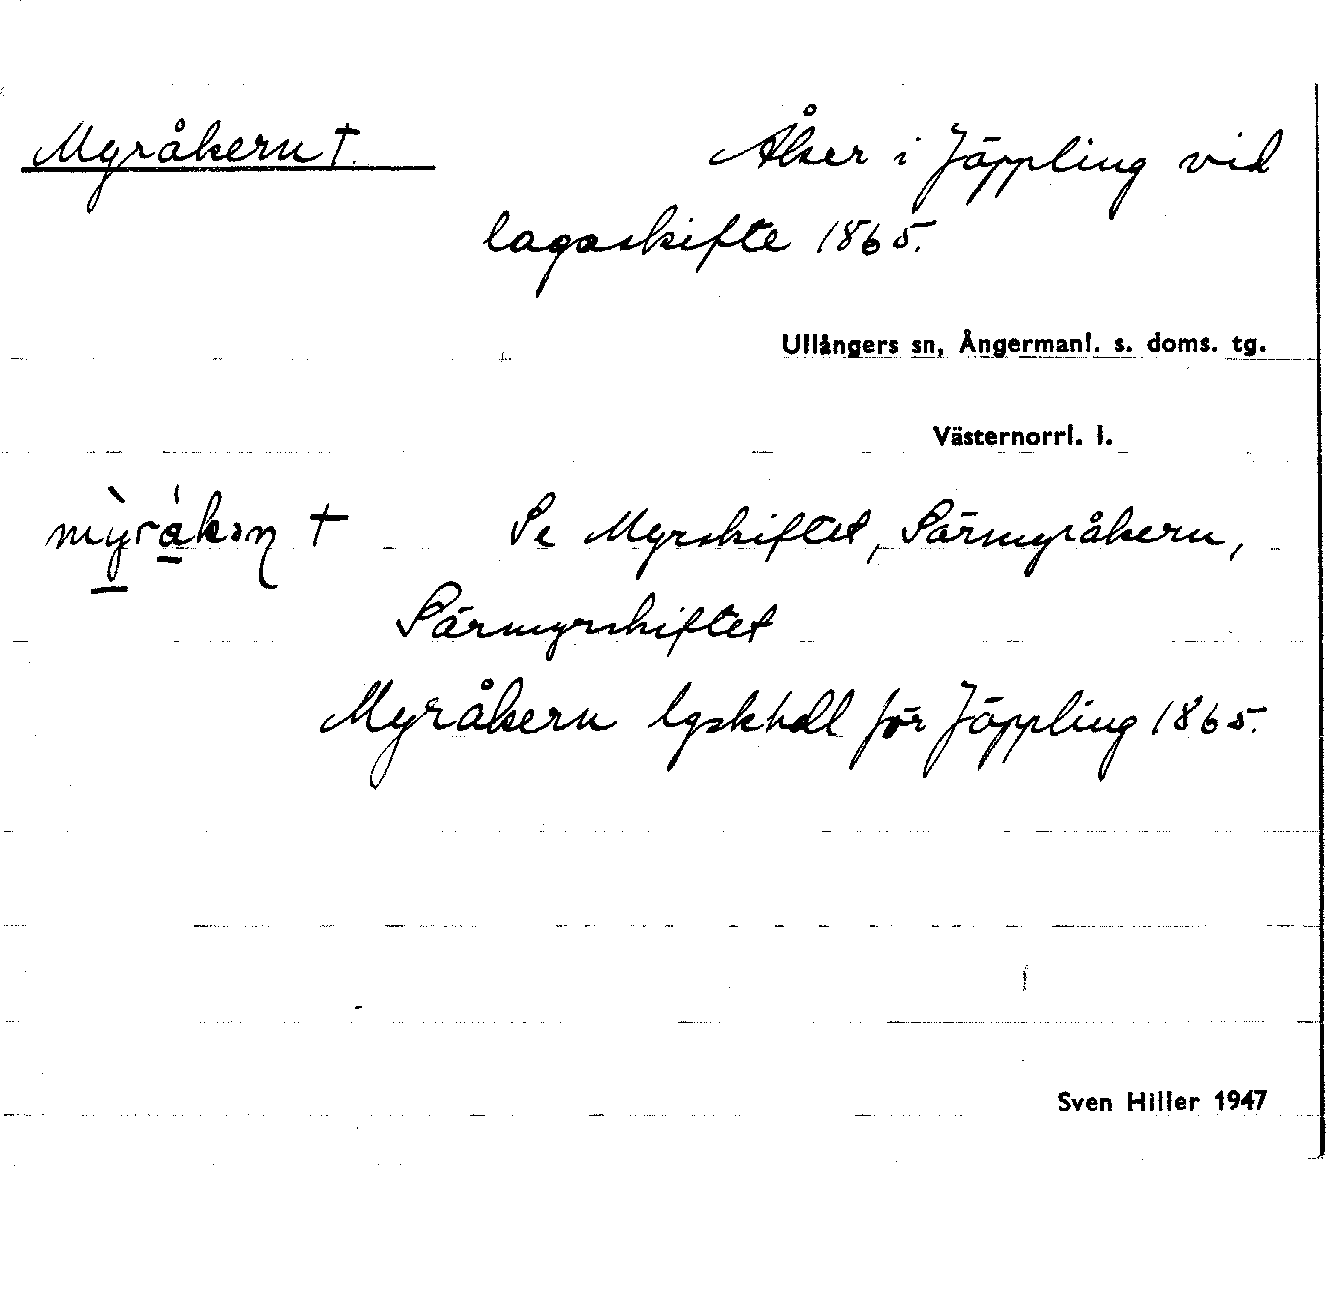 Myråkern †. Åker i Jäppling vid
lagaskifte 1865.
Ullångers sn, Ångermanl. s. doms. tg.
Västernorrl. l.
mỳråkəɳ † Se Myrskiftet, Särmyråkern,
Särmyrskiftet
Myråkern lgskhdl för Jäppling 1865.
Sven Hiller 1947